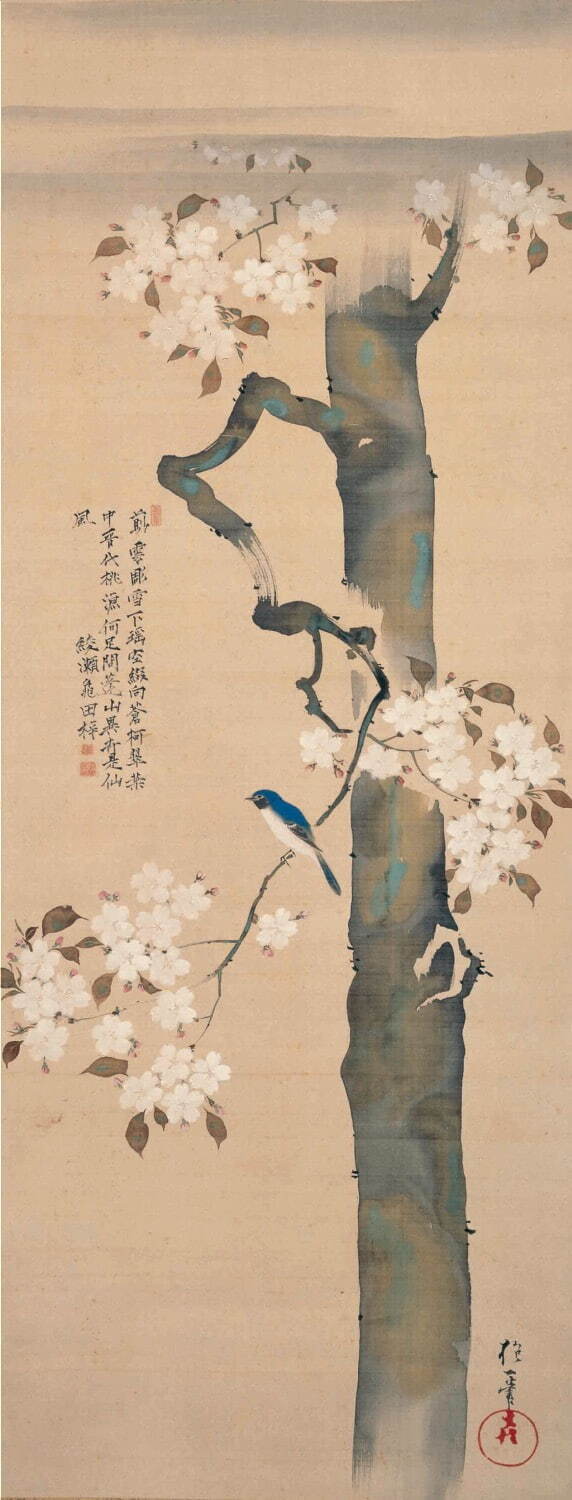 剪雲彫雪下瑶空綴向蒼柯翠葉
中晋代桃源何足問蓬山異卉是仙
風
綾瀬亀田梓
抱一筆